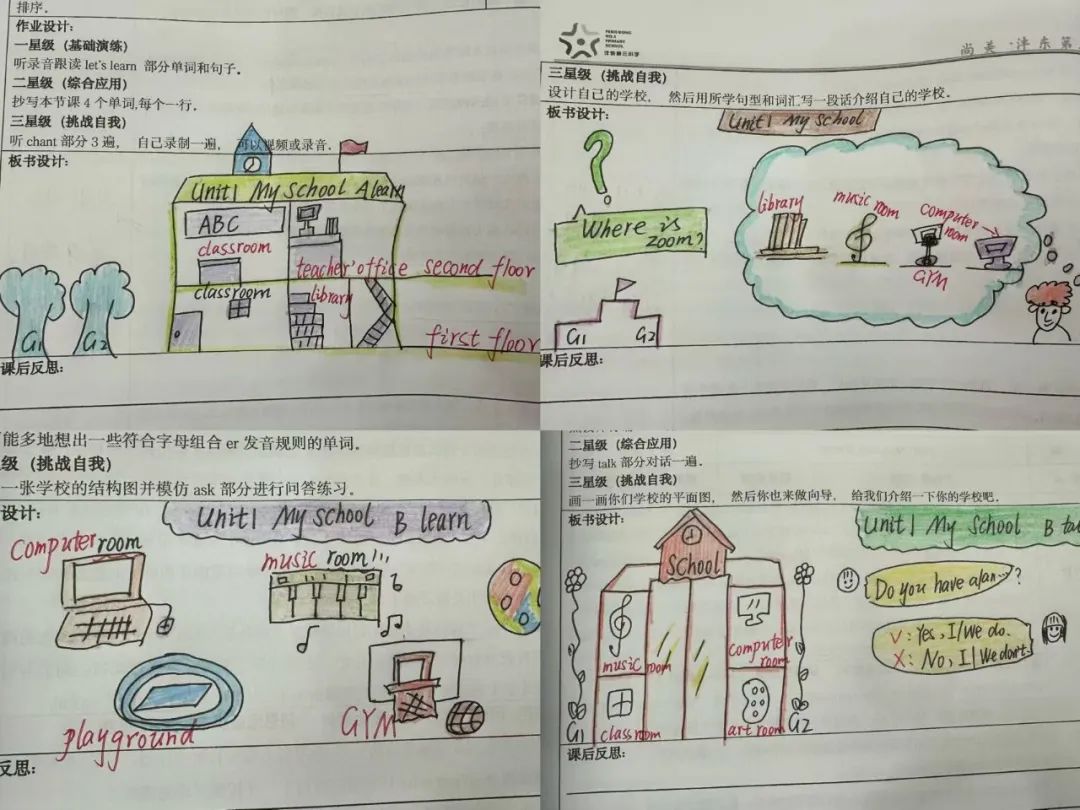 排序。
作业设计:
一星级（基础演练）
听录音跟读 let's learn 部分单词和句子。
二星级（综合应用）
抄写本节课4个单词,每个一行。
三星级（挑战自我）
听 chant 部分3遍， 自己录制一遍， 可以视频或录音。
板书设计:
Unit1 My School A learn
ABC
classroom
teacher'office second floor
classroom
library
first floor
G1
G2
课后反思:
FENGDONG
NO.3
PRIMARY
SCHOOL
沣东第三小学
尚美·沣东第
三星级（挑战自我）
设计自己的学校， 然后用所学句型和词汇写一段话介绍自己的学校。
板书设计:
Unit1 My School
?
Where is
room?
library
music room
computer
room
GYM
G1
G2
课后反思:
能多地想出一些符合字母组合 er 发音规则的单词。
级（挑战自我）
一张学校的结构图并模仿 ask 部分进行问答练习。
设计:
Unit1 My School B learn
Computer room
music room
playground
GYM
反思:
二星级（综合应用）
抄写 talk 部分对话一遍。
三星级（挑战自我）
画一画你们学校的平面图， 然后你也来做向导， 给我们介绍一下你的学校吧。
板书设计:
Unit1 My School B ta
School
Do you have a/an…?
V: Yes, I/We do.
X: No, I/We don't.
music room
computer
room
classroom
art room
G1
G2
课后反思: